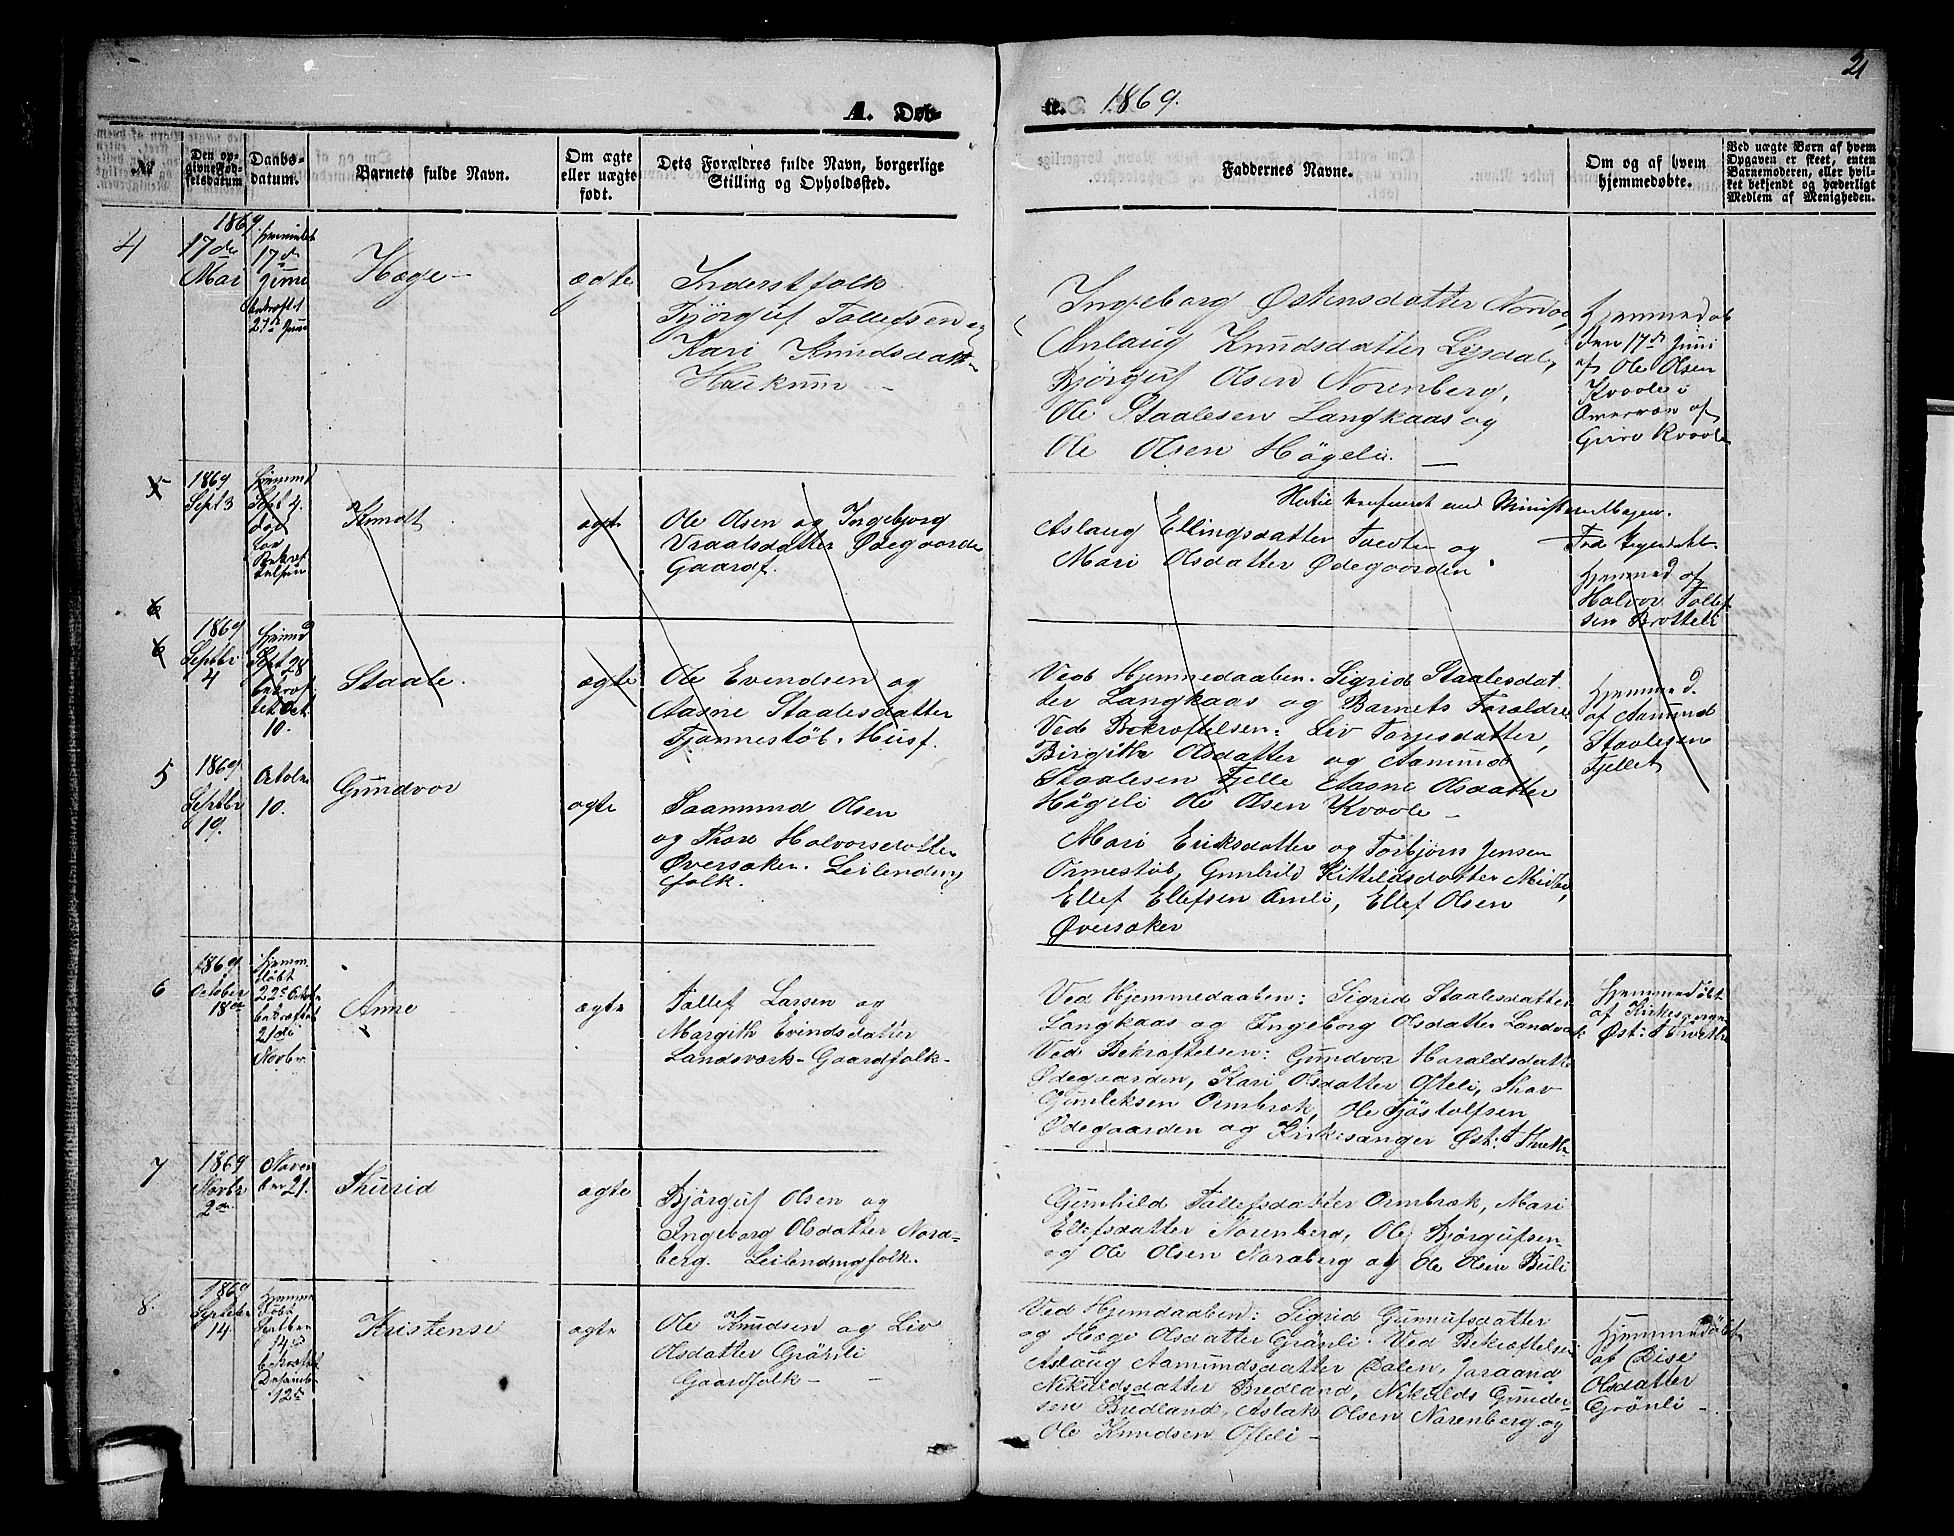 2
A. Døb-
te. 1869.
No
Den op-
givne Fød-
selsdatum
Daabs-
datum.
Barnets fulde Navn.
Om ægte
eller uægte
født.
Dets Forældres fulde Navn, borgerlige
Stilling og Opholdssted.
Faddernes Navne.
Om og af hvem
hjemmedøbte.
Ved uægte Børn af hvem
Opgaven er skeet, enten
Barnemoderen, eller hvil-
ket bekjendt og hæderligt
Medlem af Menigheden.
4
1869
17de
Mai
hjemmedøbt
17de
Juni
27de Juni
Hæge
ægte
Inderstfolk
Bjørguf Tallefsen og
Kari Knudsdatt.
Haukum
Ingeborg Østensdatter Nordbø,
Anlaug Knudsdatter Lysdal,
Bjørguf Olsen Norenberg,
Ole Staalesen Langkaas og
Ole Olsen Høgeli.
Hjemmedøb
den 17de Juni
af Ole Olsen
Kvaale i
af
Guro Kvaale
5
1869
Sept 3
Hjemmed
Sept 4.
død
før
Bekræf
telsen
Knudt
ægte
Ole Olsen og Ingebjorg
Vraalsdatter Ødegaarden
Gaardf.
Hertil konfereret med Ministerialbogen.
Aslaug Ellingsdatter Tveten og
Mari Olsdatter Ødegaarden
Hjemmed af
Halvor Tallef
sen Brotteli
6
6
1869
Septbr
4
Hjemmd
Sept 28
bekræf
tet Oct.
10.
Staale.
ægte
Ole Evendsen og
Aasne Staalesdatter
Tjønnestøb. Husf.
Ved Hjemmedaaben. Sigrid Staalesdat
ter Langkaas og Barnets Forældre
Ved Bekræftelsen: Liv Torjesdatter,
Birgithe Olsdatter og Aamund
Staalesen Fjelle Aasne Olsdatter
Høgeli Ole Olsen Kvaale
Hjemmed.
af Aamund
Staalesen
Fjellet
5
1869
Septbr
19.
Octobr
10.
Gundvor
ægte
Saamund Olsen
og Thore Halvorsdatter
Øversaker. Leilendings
folk.
Mari Eriksdatter og Torbjørn Jensen
Ormestøb, Gunhild Kittelsdatter Midtbø,
Ellef Ellefsen Amli, Ellef Olsen
Øversaker
6
1869
October
18de
Hjemme
døbt
22de Octobr
bekræftet
21de
Novbr
Anne
ægte
Tallef Larsen og
Margith Evindsdatter
Landsværk - Gaardfolk -
Ved Hjemmedaaben: Sigrid Staalesdatter
Langkaas og Ingeborg Olsdatter Landsværk
Ved Bekræftelsen: Gundvor Haraldsdatter
Ødegaarden, Kari Olsdatter Ofteli, Thor
Gunleksen Ormbrek, Ole Tjøstolfsen
Ødegaarden og Kirkesanger Øst:
Hjemmedøbt
af Kirkesanger
Øst:
7
1869
Novbr
2den
Novem
ber 21.
Thurid
ægte
Bjørguf Olsen og
Ingeborg Olsdatter Nord-
berg. Leilendingfolk.
Gunhild Tallefsdatter Ormbrek, Mari
Ellefsdatter Norenberg, Ole Bjørgufsen
og Ole Olsen Noraberg og Ole Olsen Buli
8.
1869
September
14.
Hjemme
døbt
Septbr
14de
bekræftet
Decemb-
12te
Kristense
ægte
Ole Knudsen og Liv
Olsdatter Grønli
Gaardfolk -
Ved Hjemdaaben: Sigrid Gunnufsdatter
og Hæge Olsdatter Grønli. Ved Bekræftelsen
Aslaug Aamundsdatter Dalen, Jøraand
Nikuldsdatter Bredland, Nikulds Gunder-
sen Bredland, Aslak Olsen Norenberg og
Ole Knudsen Ofteli -
Hjemmedøbt
af Dise
Olsdatter
Grønli -